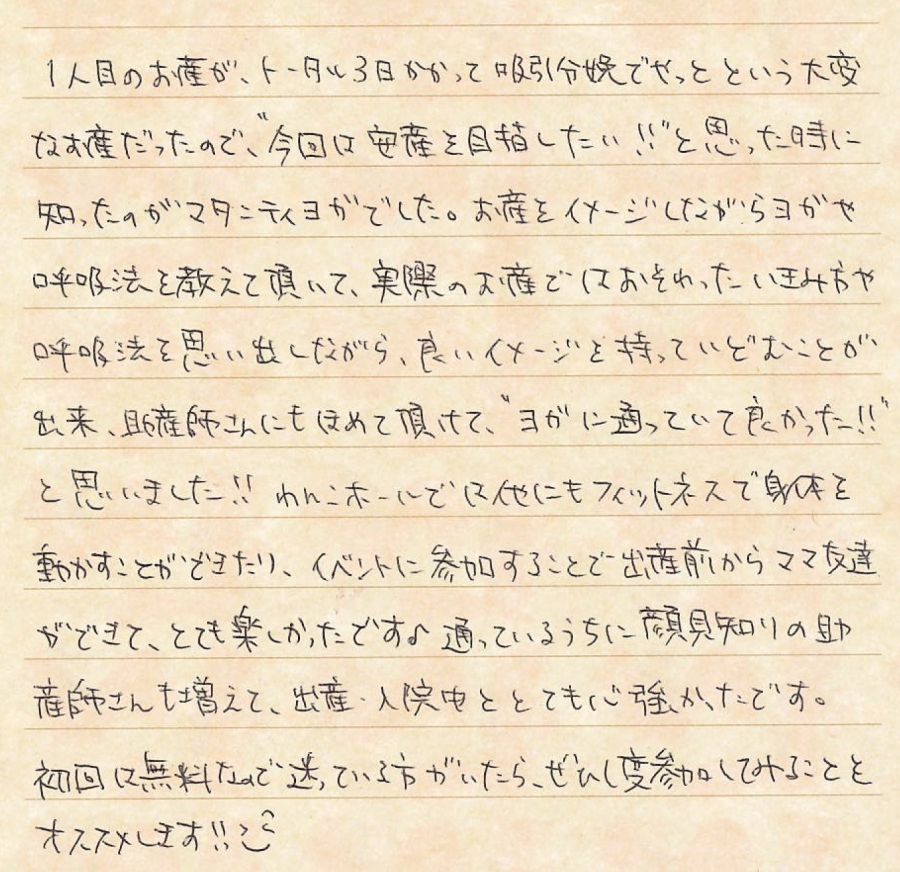 1人目のお産が、トータル3日かかって吸引分娩でやっとという大変
なお産だったので、“今回は安産を目指したい!!”と思った時に
知ったのがマタニティヨガでした。お産をイメージしながらヨガや
呼吸法を教えて頂いて、実際のお産ではおそわったいきみ方や
呼吸法を思い出しながら、良いイメージを持っていどむことが
出来、助産師さんにもほめて頂けて、“ヨガに通っていて良かった!!”
と思いました!! わんこホールでは他にもフィットネスで身体を
動かすことができたり、イベントに参加することで出産前からママ友達
ができて、とても楽しかったです♪ 通っているうちに顔見知りの助
産師さんも増えて、出産・入院中ととても心強かったです。
初回は無料なので迷っている方がいたら、ぜひ1度参加してみることを
オススメします!!